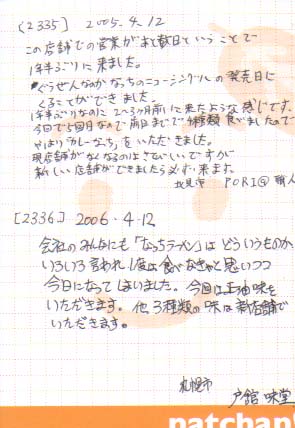 [2335] 2005.4.12
この店舗での営業があと数日ということで
1年半ぶりに来ました。
ぐうぜんなのかなっちのニューシングルの発売日に
くることができました。
1年半ぶりなのに2〜3ヶ月前に来たような感じです。
今回で5回目なので前日までで4種類食べましたので
やはり「カレーなっち」をいただきました。
現店舗がなくなるのはさびしいですが
新しい店舗ができましたら必ず来ます。
北見市 PORI@職人
[2336] 2006.4.12
会社のみんなにも「なっちラーメン」はどういうものか
いろいろ言われ1度は食べなきゃと思いつつ
今日になってしまいました。今回は正油味を
いただきます。他3種類の味は新店舗で
いただきます。
札幌市 戸館 味堂
patchan